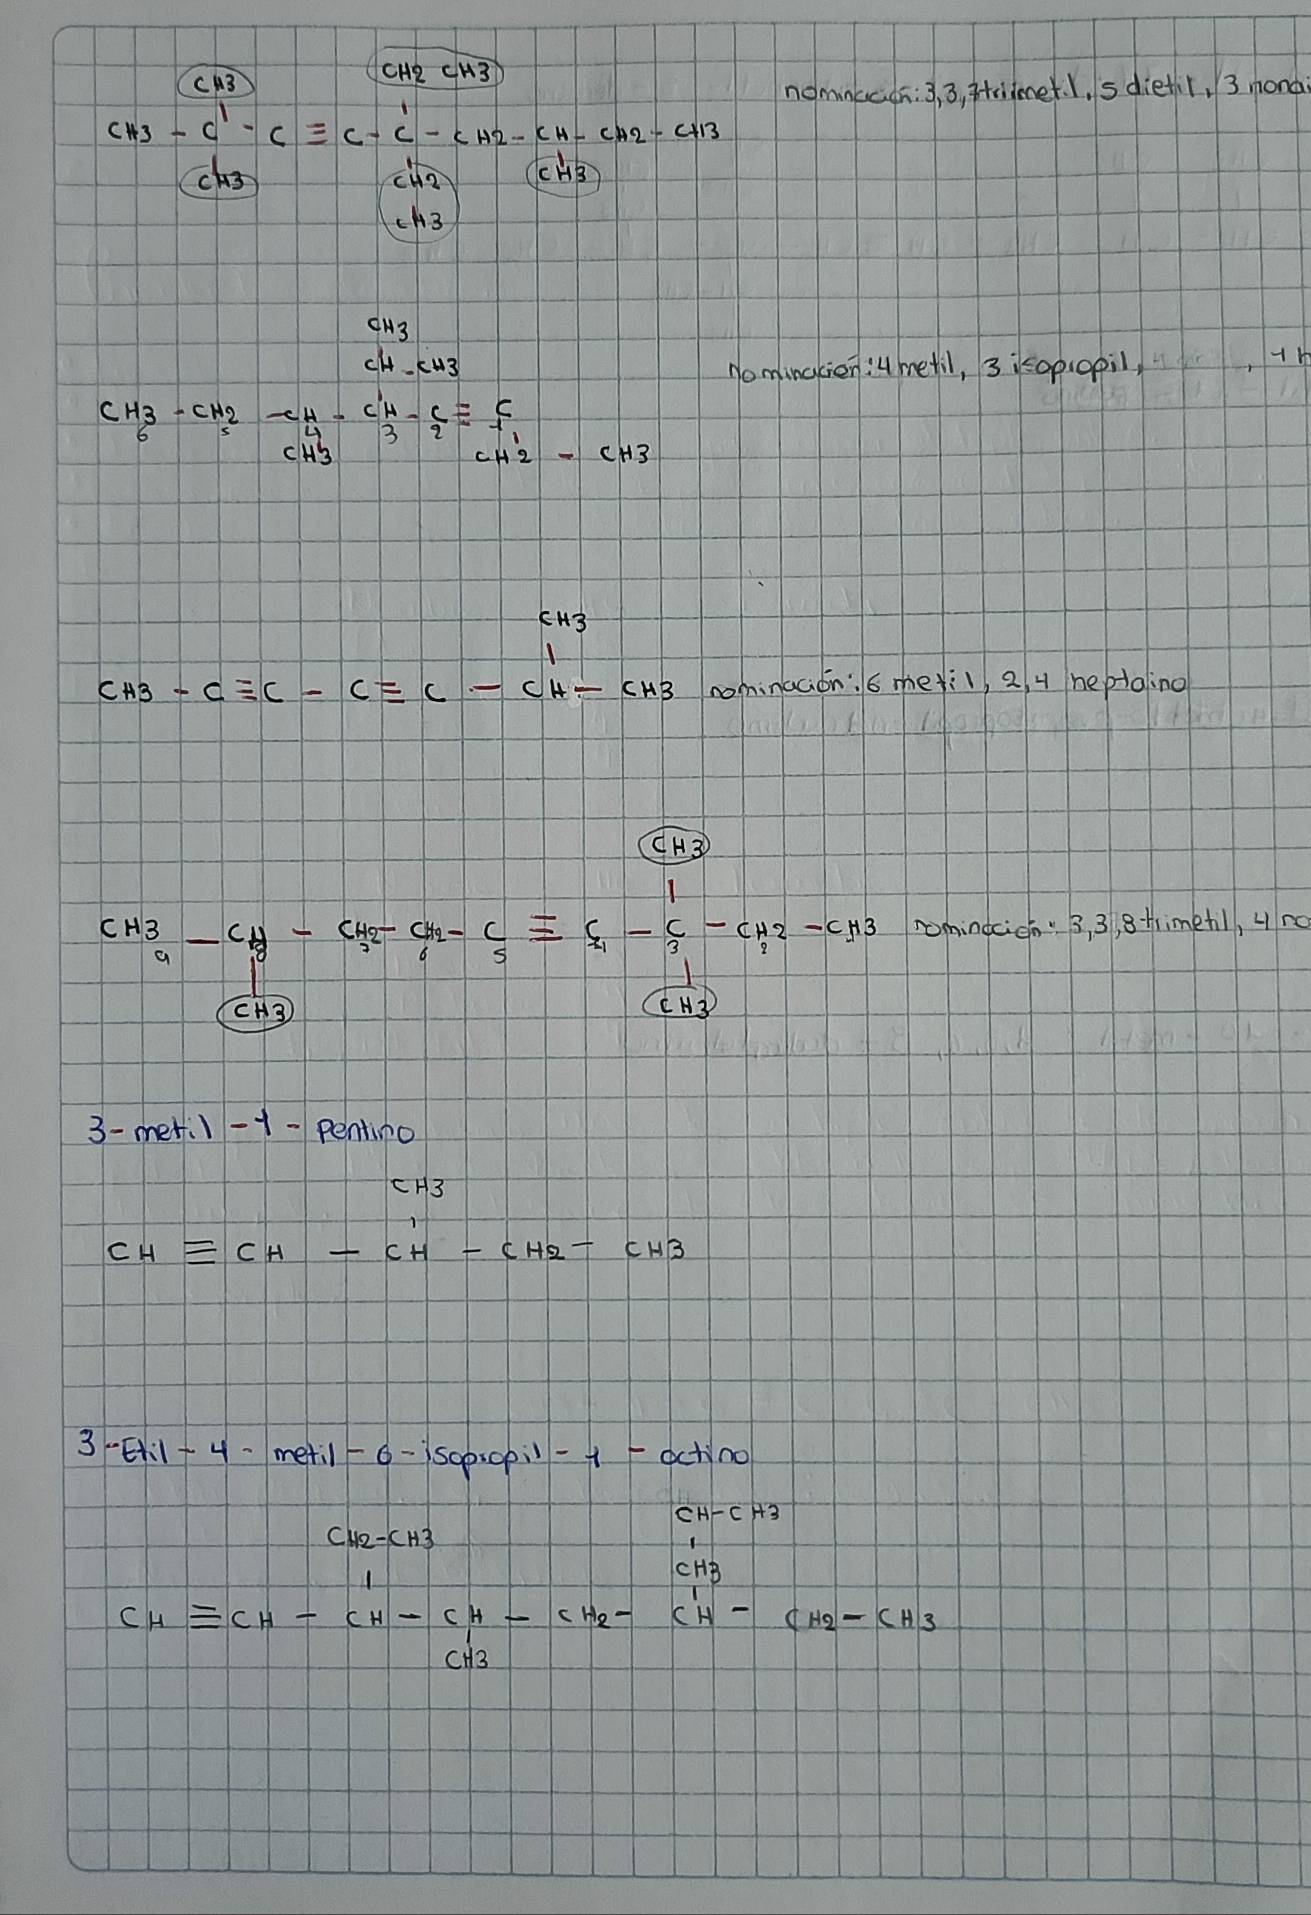 CH3 CH2 CH3 nominación: 3,3,7trimetil, 5 dietil, 3 nonai
CH3 - C - C ≡ C - C - CH2 - CH - CH2 - CH3
CH3 CH2 CH3
CH3
CH3
CH - CH3 nominación: 4 metil, 3 isopropil, , 1 h
CH3 - CH2 - CH - CH - C ≡ C
6 5 4 3 2 1
CH3 CH2 - CH3
CH3
CH3 - C ≡ C - C ≡ C - CH - CH3 nominación: 6 metil, 2,4 heptaino
CH3
CH3 - CH - CH2 - CH2 - C ≡ C - C - CH2 - CH3 nominación: 3,3,8 trimetil, 4 no
9 8 7 6 5 4 3 2 1
CH3 CH3
3-metil-1-Pentino
CH3
CH ≡ CH - CH - CH2 - CH3
3-Etil-4-metil-6-isopropil-1-octino
CH-CH3
CH2-CH3
CH3
CH ≡ CH - CH - CH - CH2 - CH - CH2 - CH3
CH3